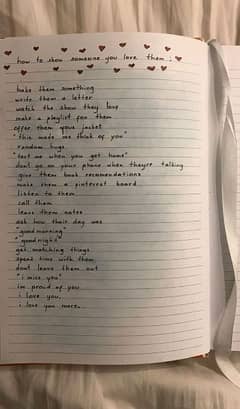 how to show someone you love them :
bake them something
write them a letter
watch the show they love
make a playlist for them
offer them your jacket
"this made me think of you"
random hugs
"text me when you get home"
dont go on your phone when theyre talking
give them book recomendations
make them a pinterest board
listen to them
call them
leave them notes
ask how their day was
"goodmorning"
"goodnight"
get matching things
spend time with them
dont leave them out
"i miss you"
im proud of you
i love you.
i love you more.